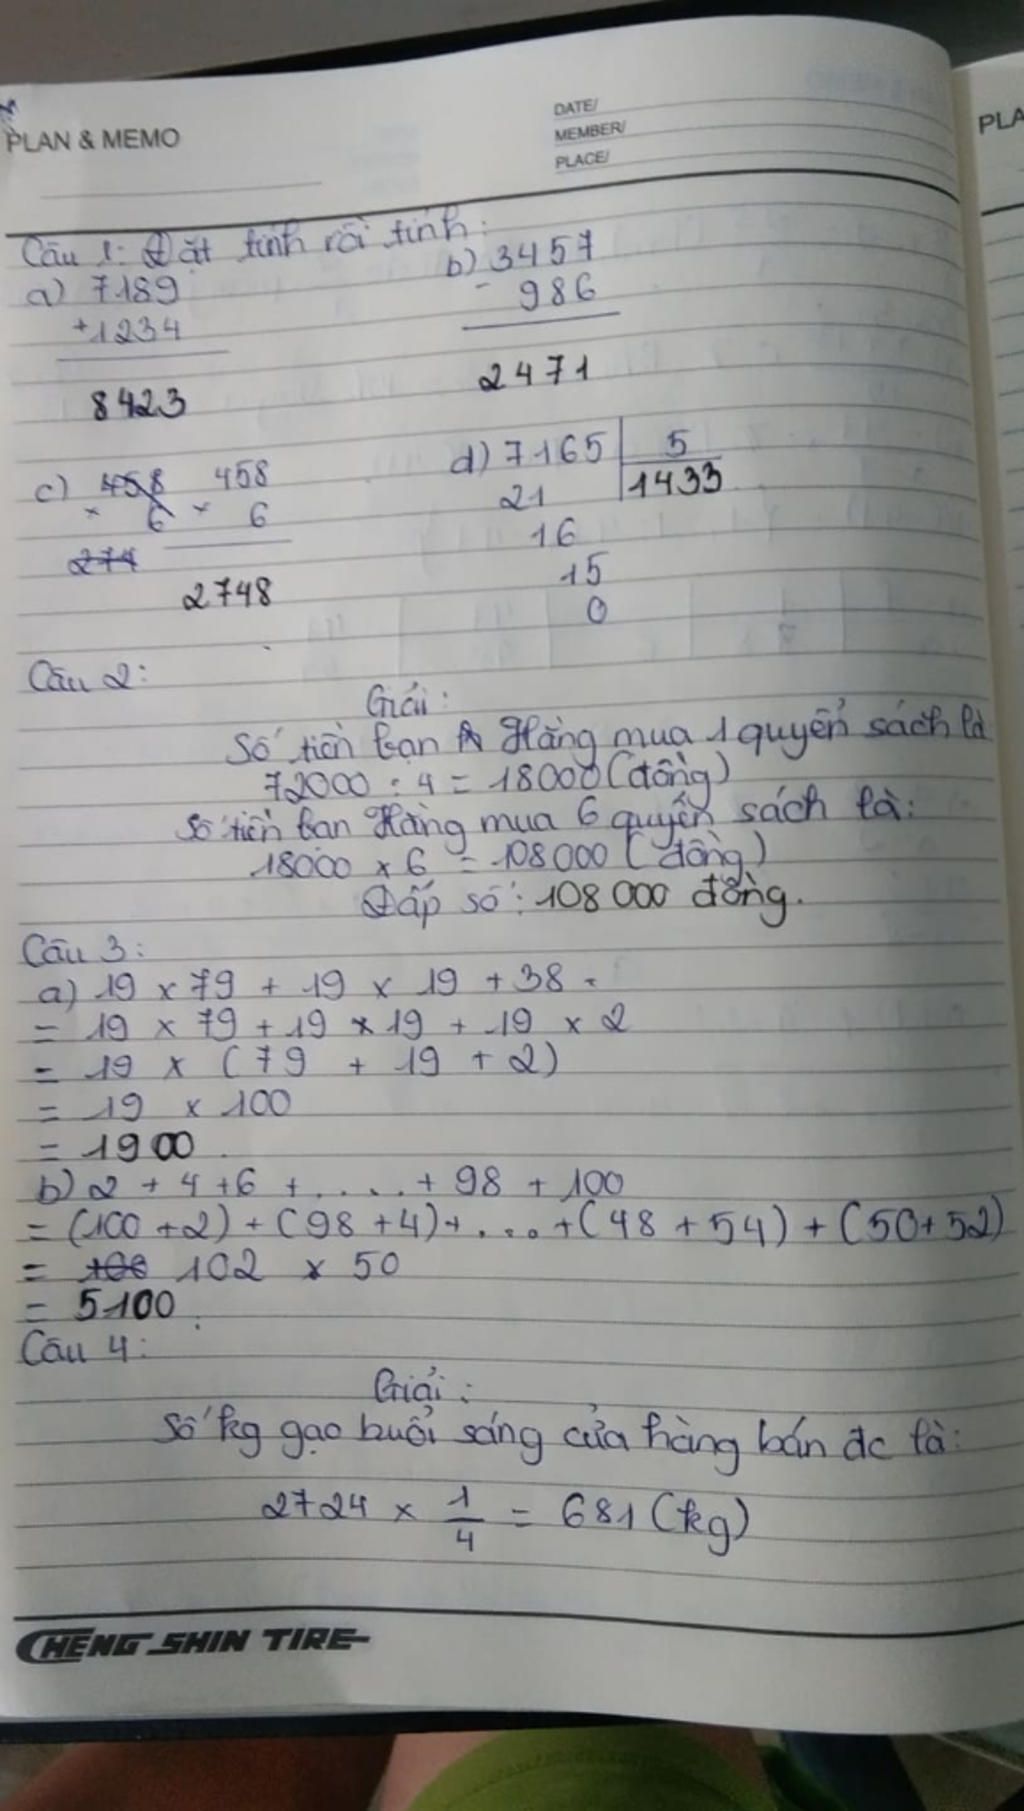 PLAN & MEMO
DATE/
MEMBER/
PLACE/
PLA
Câu 1: Đặt tính rồi tính:
a) 7189
+1234
8423
b) 3457
- 986
2471
c) 458 458
× 6 × 6
274
2748
d) 7165 5
21 1433
16
15
0
Câu 2:
Giải:
Số tiền bạn Hằng mua 1 quyển sách là
72000 : 4 = 18000 (đồng)
Số tiền bạn Hằng mua 6 quyển sách là:
18000 × 6 = 108000 (đồng)
Đấp số: 108 000 đồng.
Câu 3:
a) 19 × 79 + 19 × 19 + 38
= 19 × 79 + 19 × 19 + 19 × 2
= 19 × (79 + 19 + 2)
= 19 × 100
= 1900
b) 2 + 4 + 6 + ..... + 98 + 100
= (100 + 2) + (98 + 4) + .... + (48 + 54) + (50 + 52)
= 102 × 50
= 5100
Câu 4:
Giải:
Số kg gạo buổi sáng cửa hàng bán đc là:
2724 × 1/4 = 681 (kg)
CHENG SHIN TIRE